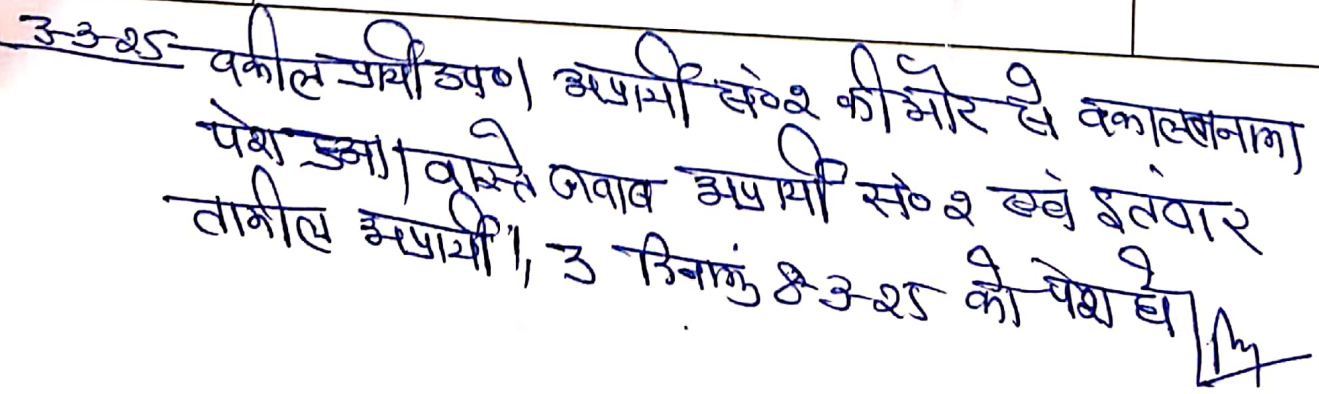 3-3-25 वकील प्रार्थी उप०। अप्रार्थी सं० 2 की ओर से वकालतनामा
पेश हुआ। वास्ते जवाब अप्रार्थी सं० 2 एवं इतंजार
तामील अप्रार्थी 1, 3 दिनांक 8-3-25 को पेश हो।